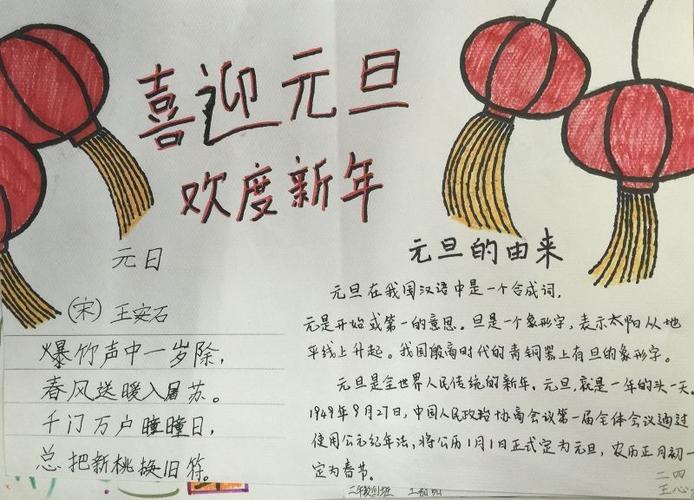 喜迎元旦
欢度新年
元日
(宋) 王安石
爆竹声中一岁除,
春风送暖入屠苏。
千门万户曈曈日,
总把新桃换旧符。
元旦的由来
元旦在我国汉语中是一个合成词,
元是开始或第一的意思。旦是一个象形字,表示太阳从地
平线上升起。我国殷商时代的青铜器上有旦的象形字。
元旦是全世界人民传统的新年,元旦,就是一年的头一天。
1949年9月27日,中国人民政治协商会议第一届全体会议通过
使用公元纪年法,将公历1月1日正式定为元旦,农历正月初一
定为春节。
二四